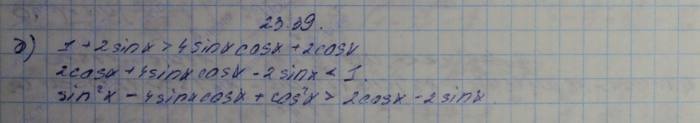 23.39.
б) 1 + 2sinx > 4sinxcosx + 2cosx
2cosx + 4sinxcosx - 2sinx < 1.
sin²x - 4sinxcosx + cos²x > 2cosx - 2sinx.